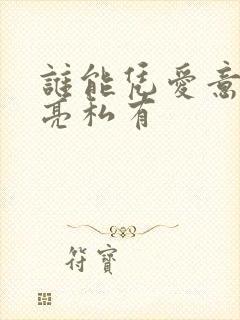 誰能凭愛意
亮私有
符寶